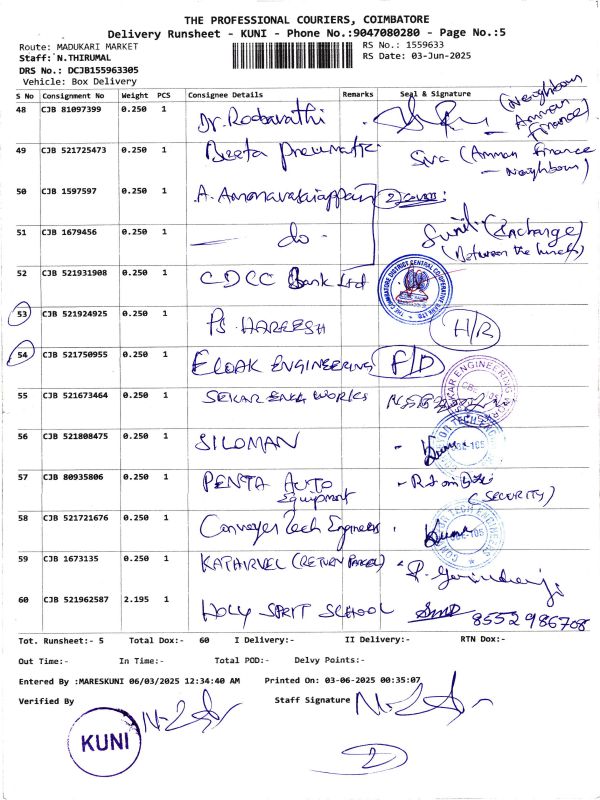 THE PROFESSIONAL COURIERS, COIMBATORE
Delivery Runsheet - KUNI - Phone No.:9047080280 - Page No.:5
Route: MADUKARI MARKET RS No.: 1559633
Staff: N.THIRUMAL RS Date: 03-Jun-2025
DRS No.: DCJB155963305
Vehicle: Box Delivery
S No Consignment No Weight PCS Consignee Details Remarks Seal & Signature
48 CJB 81097399 0.250 1 Dr. (Neighbour Amman Finance)
49 CJB 521725473 0.250 1 Beeta Pneumatic Siva (Amman Finance - Neighbour)
50 CJB 1597597 0.250 1 A. 2
51 CJB 1679456 0.250 1 - do - Sunil (Incharge)
52 CJB 521931908 0.250 1 CDCC Bank Ltd THE COIMBATORE DISTRICT CENTRAL COOPERATIVE BANK LTD.
53 CJB 521924925 0.250 1 PS HAREESH H/R
54 CJB 521750955 0.250 1 ELOAK ENGINEERING F/D
55 CJB 521673464 0.250 1 SEKAR ENGG WORKS SEKAR ENGINEERING
56 CJB 521808475 0.250 1 SILOMAN - Kuma
57 CJB 80935806 0.250 1 PENTA AUTO Equipment (SECURITY)
58 CJB 521721676 0.250 1 Conveyer Tech Engineers Kuma TECH ENGINEERS
59 CJB 1673135 0.250 1 KATHIRVEL (RETURN PARCEL)
60 CJB 521962587 2.195 1 HOLY SPRIT SCHOOL 8552986708
Tot. Runsheet:- 5 Total Dox:- 60 I Delivery:- II Delivery:- RTN Dox:-
Out Time:- In Time:- Total POD:- Delvy Points:-
Entered By :MARESKUNI 06/03/2025 12:34:40 AM Printed On: 03-06-2025 00:35:07
Verified By Staff Signature
KUNI
2